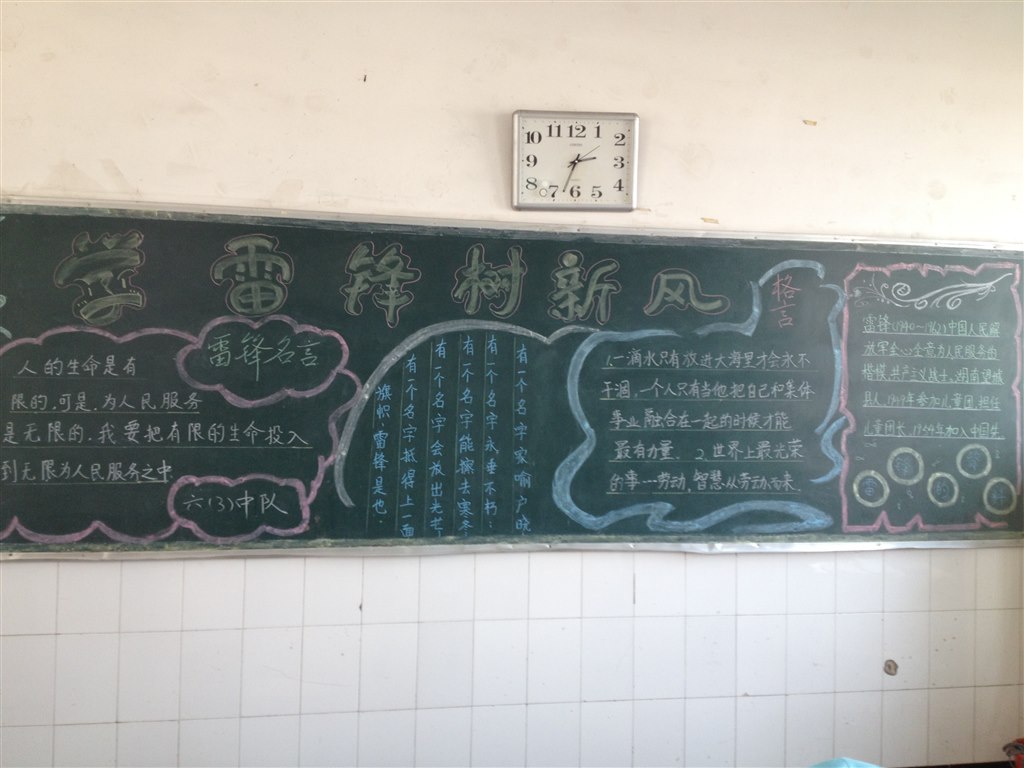 学雷锋树新风
雷锋名言
人的生命是有
限的,可是,为人民服务
是无限的,我要把有限的生命投入
到无限为人民服务之中
六(3)中队
有一个名字家喻户晓
有一个名字永垂不朽:
有一个名字能擦去寒冬
有一个名字会放出光芒
有一个名字抵得上一面
旗帜,雷锋是也.
格言
1.一滴水只有放进大海里才会永不
干涸,一个人只有当他把自己和集体
事业融合在一起的时候才能
最有力量、2.世界上最光荣
的事…劳动,智慧从劳动而来
雷锋(1940~1962)中国人民解
放军全心全意为人民服务的
楷模,共产主义战士,湖南望城
县人,1949年参加儿童团,担任
儿童团长,1954年加入中国少
10 11 12 1 2
9 3
8 7 6 5 4